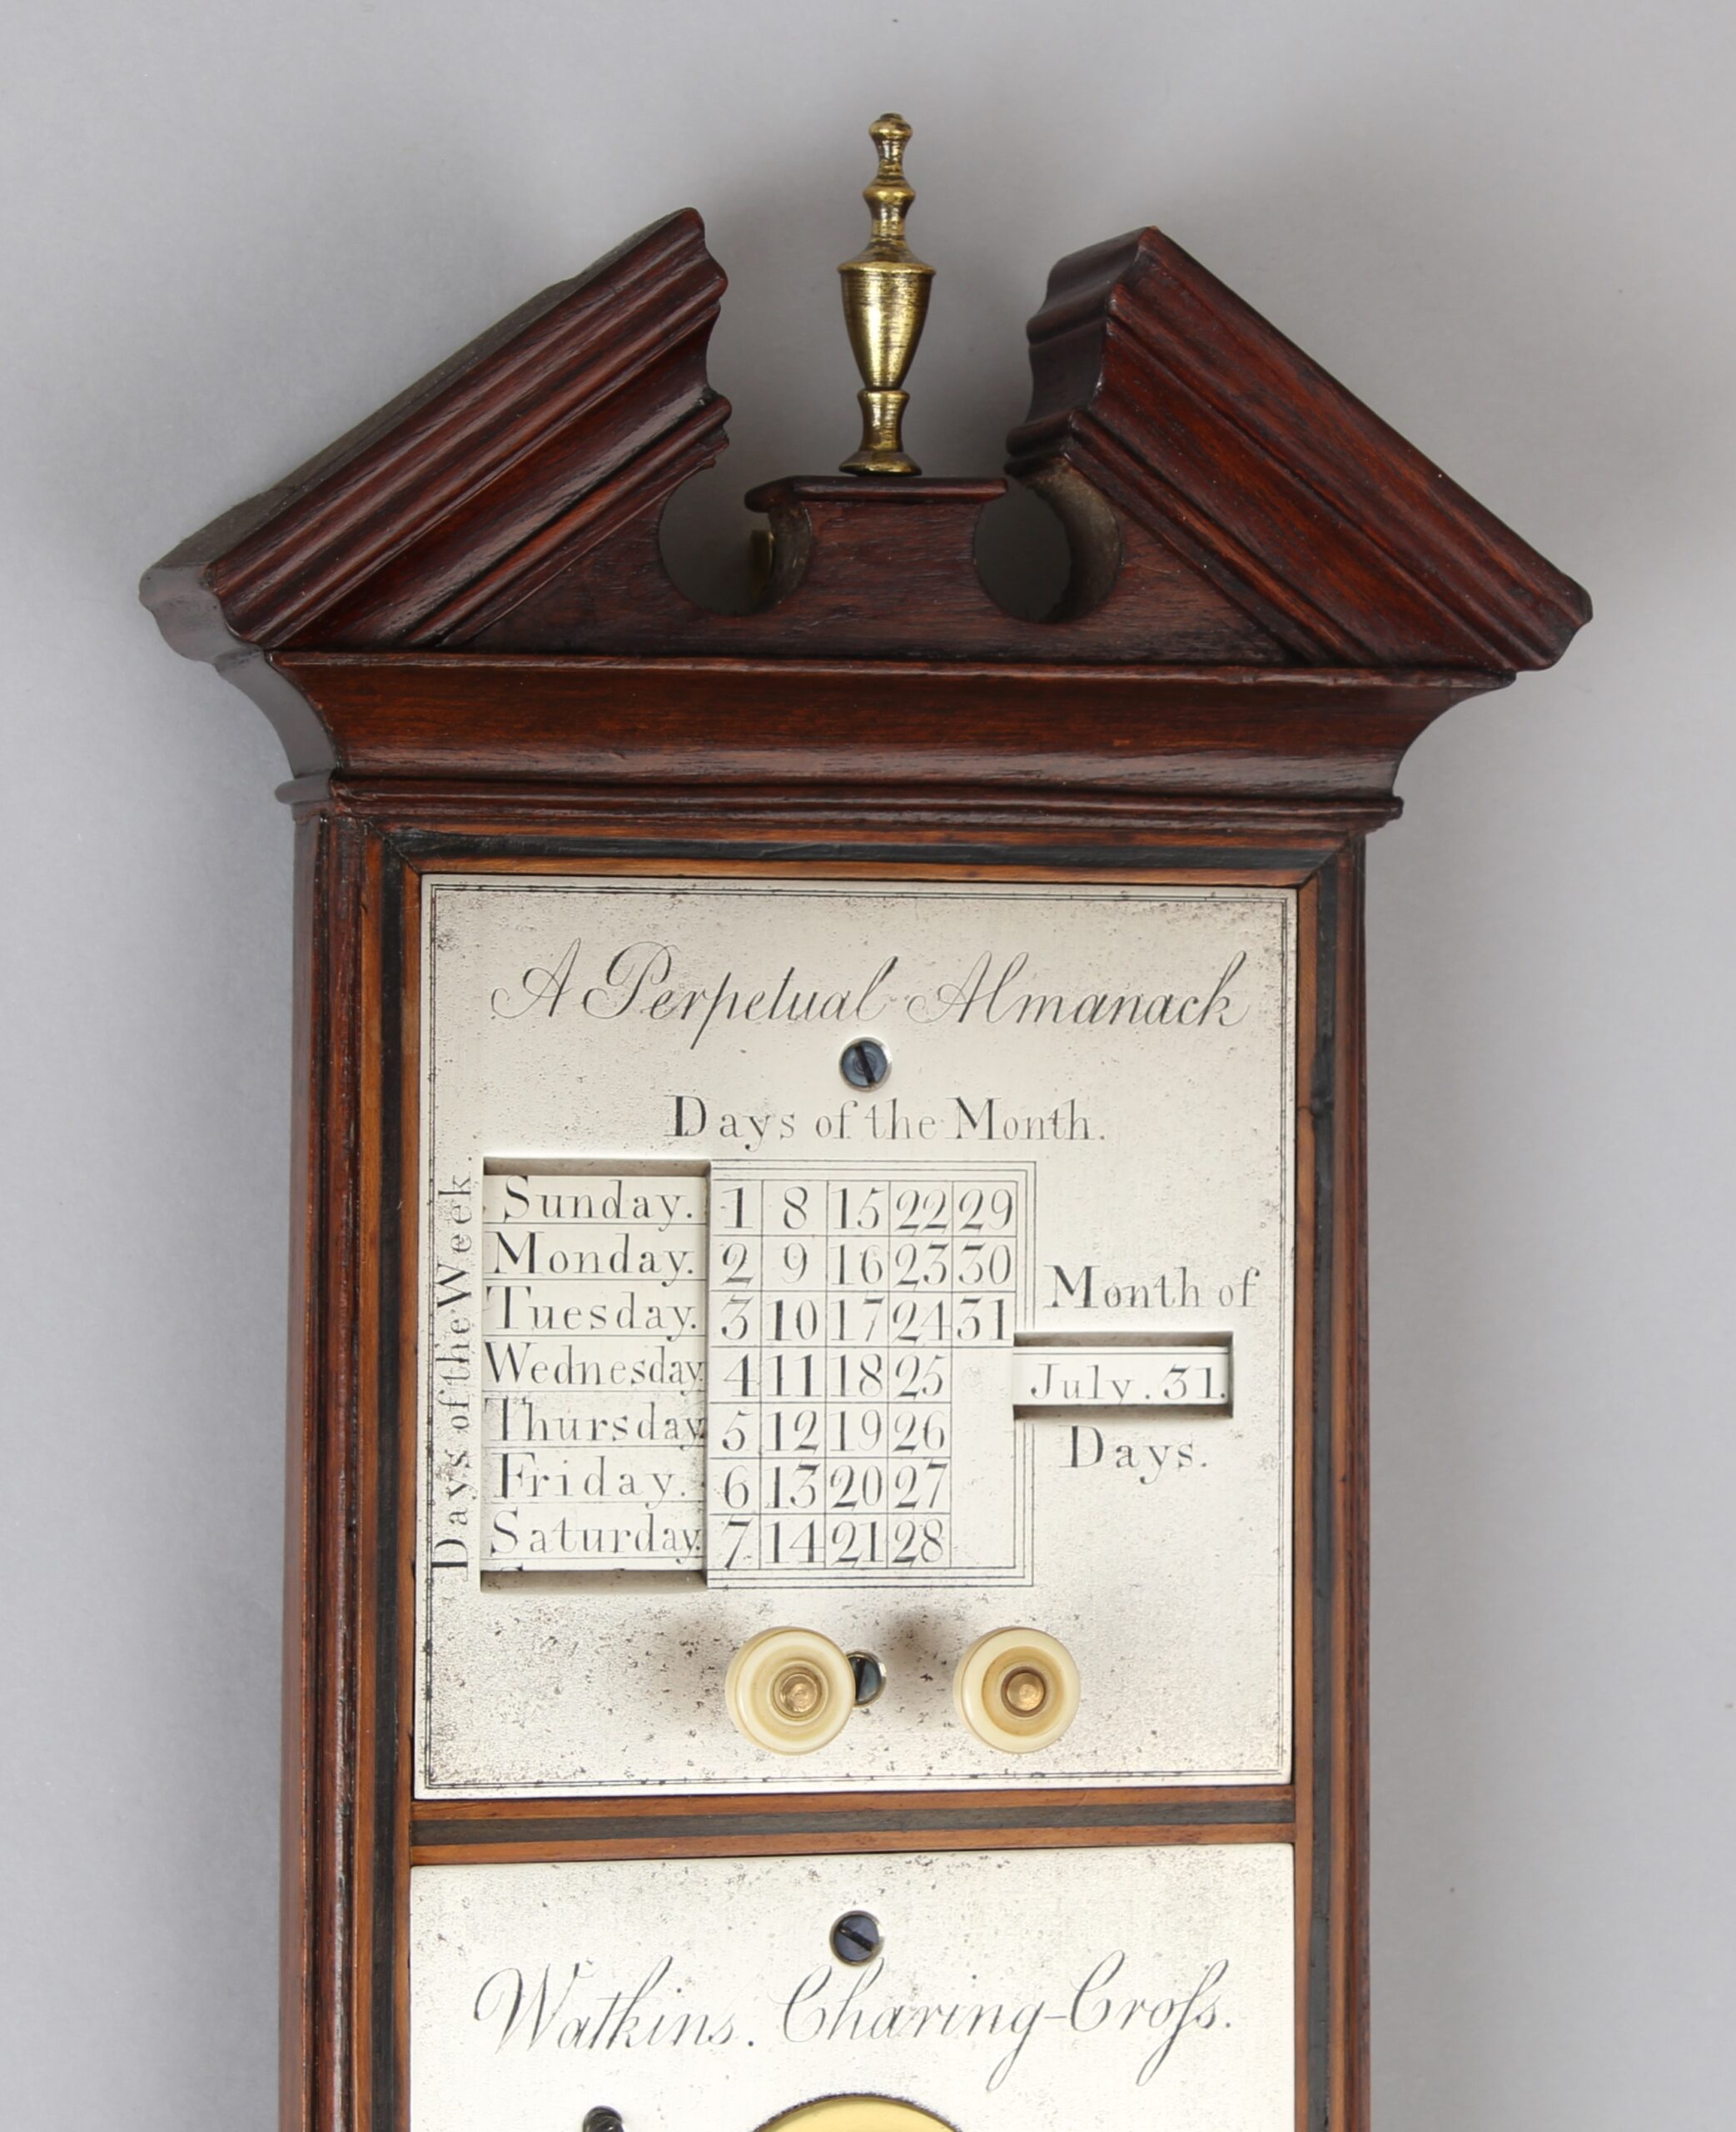 A Perpetual Almanack
Days of the Month.
Days of the Week.
Sunday. 1 8 15 22 29
Monday. 2 9 16 23 30
Tuesday. 3 10 17 24 31
Wednesday. 4 11 18 25
Thursday 5 12 19 26
Friday. 6 13 20 27
Saturday. 7 14 21 28
Month of
July. 31.
Days.
Watkins. Charing-Croſs.